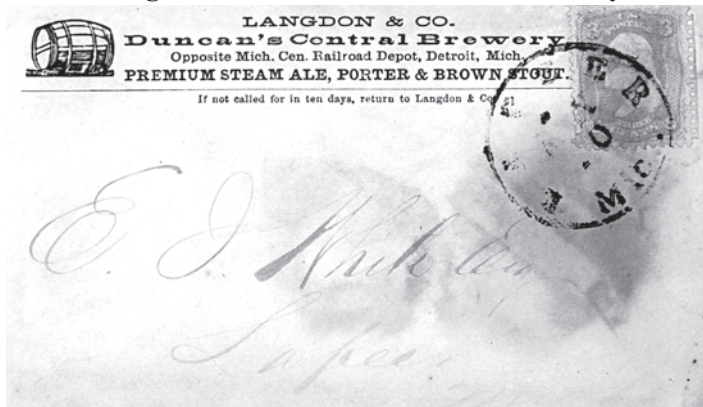 LANGDON & CO.
Duncan's Central Brewery,
Opposite Mich. Cen. Railroad Depot, Detroit, Mich.
PREMIUM STEAM ALE, PORTER & BROWN STOUT.
If not called for in ten days, return to Langdon & Co.
U.S.
POSTAGE
3 3
THREE
CENTS
MIC
E. J. White Esq
Lapeer